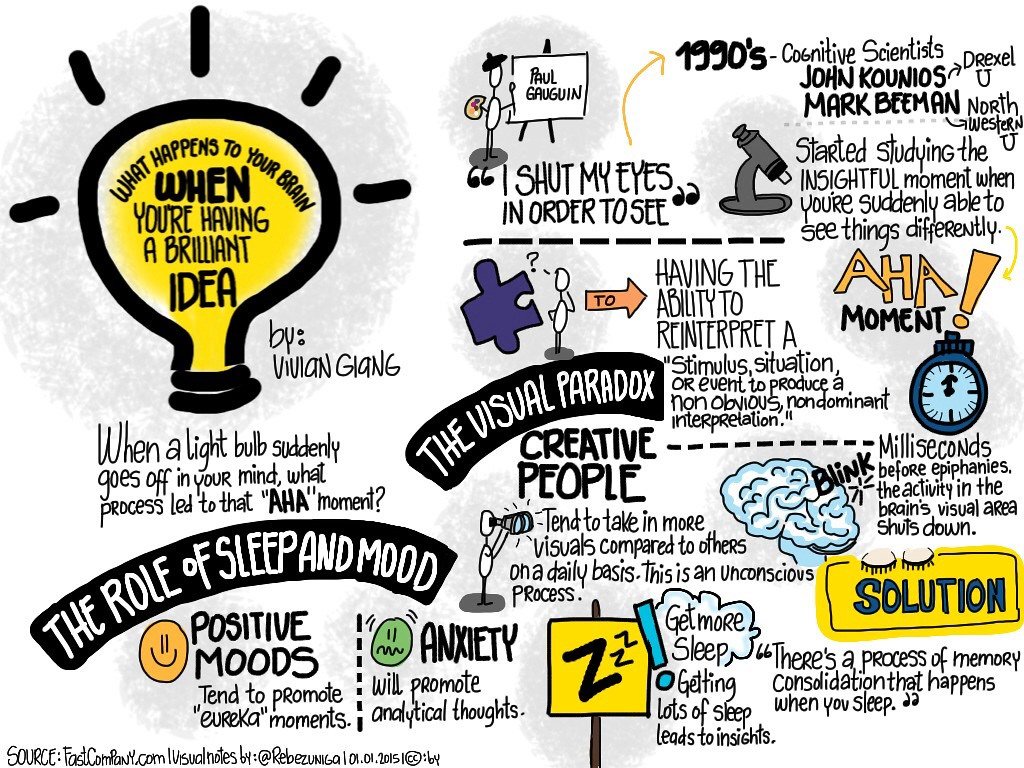 WHAT HAPPENS TO YOUR BRAIN
WHEN
YOU'RE HAVING
A BRILLIANT
IDEA
by:
VIVIAN GIANG
When a light bulb suddenly
goes off in your mind, what
process led to that "AHA" moment?
PAUL
GAUGUIN
"I SHUT MY EYES
IN ORDER TO SEE"
1990's - Cognitive Scientists
JOHN KOUNIOS
Drexel
U
MARK BEEMAN
North
western
U
Started studying the
INSIGHTFUL moment when
you're suddenly able to
see things differently.
AHA!
MOMENT
?
TO
HAVING THE
ABILITY TO
REINTERPRET A
"Stimulus, situation,
OR event to produce a
non obvious, nondominant
interpretation."
THE VISUAL PARADOX
CREATIVE
PEOPLE
-Tend to take in more
visuals compared to others
on a daily basis. This is an unconscious
process.
BLINK
Milliseconds
before epiphanies.
the activity in the
brain's visual area
shuts down.
THE ROLE OF SLEEP AND MOOD
POSITIVE
MOODS
Tend to promote
"eureka" moments.
ANXIETY
will promote
analytical thoughts.
Zzz
!
SOLUTION
Get more
Sleep
Getting
lots of sleep
leads to insights.
"There's a process of memory
Consolidation that happens
when you sleep."
SOURCE: FastCompany.com | Visualnotes by: @Rebezuniga | 01.01.2015 | (cc): by